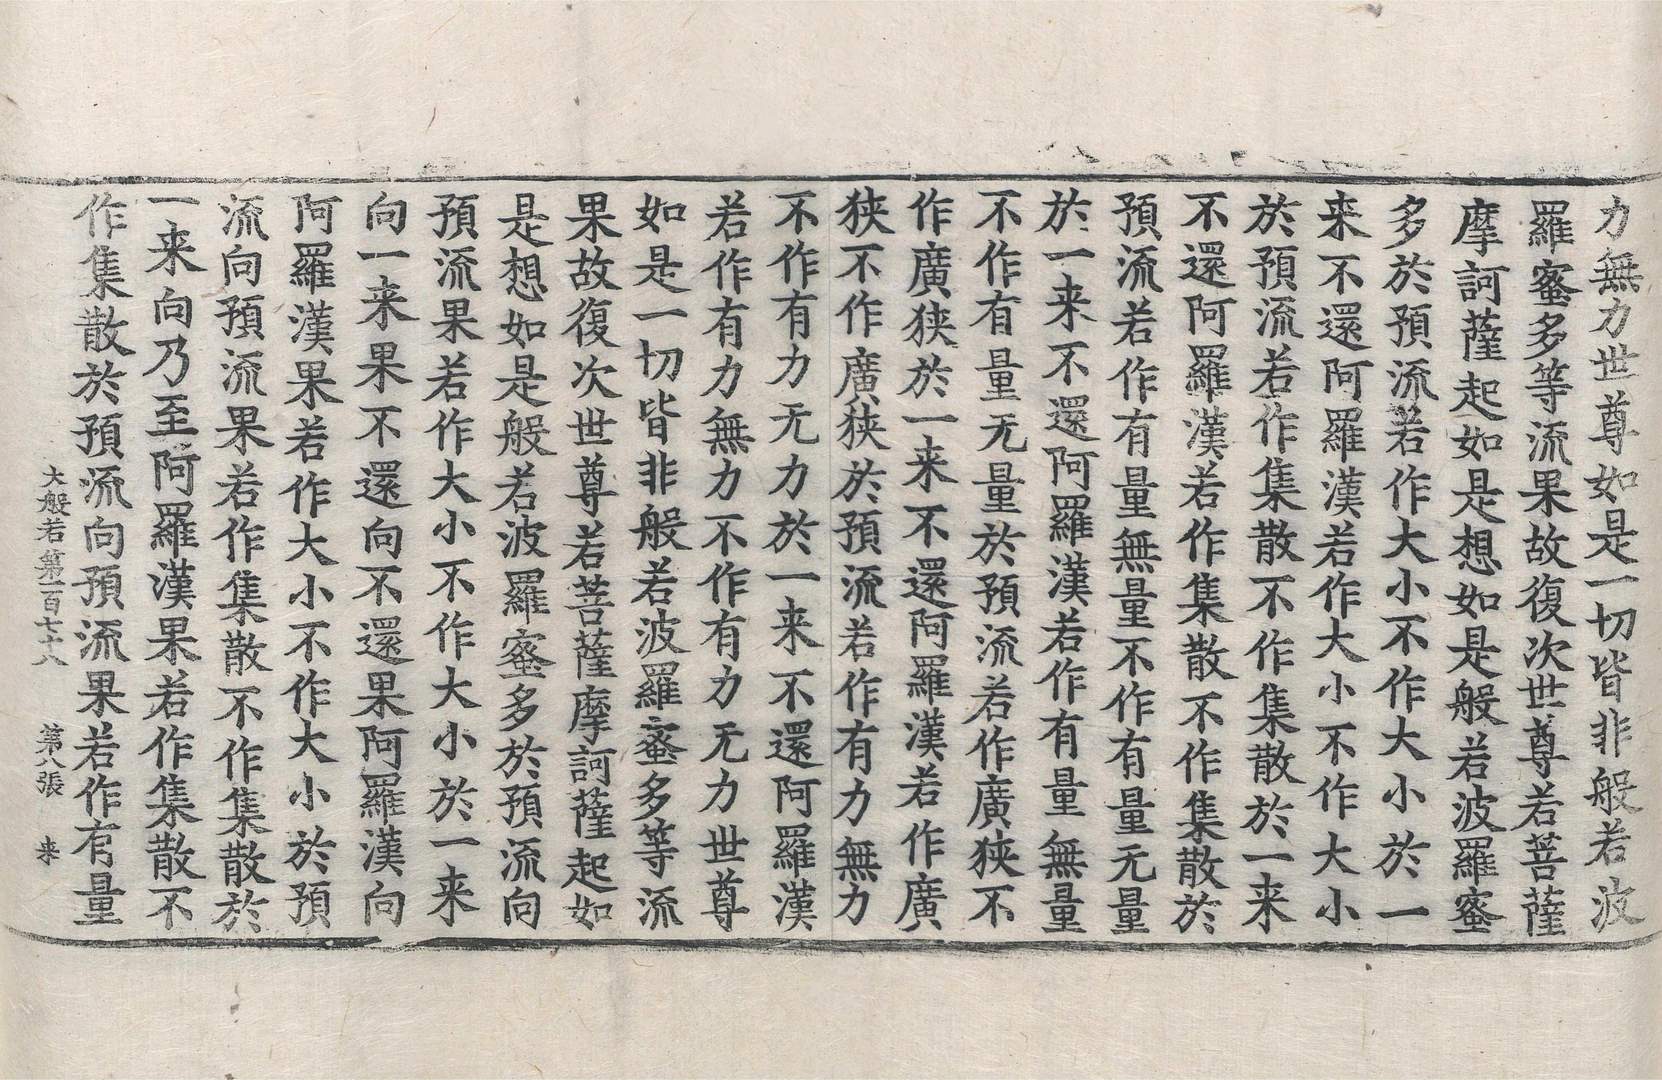 力無力世尊如是一切皆非般若波
羅蜜多等流果故復次世尊若菩薩
摩訶薩起如是想如是般若波羅蜜
多於預流若作大小不作大小於一
来不還阿羅漢若作大小不作大小
於預流若作集散不作集散於一来
不還阿羅漢若作集散不作集散於
預流若作有量無量不作有量无量
於一来不還阿羅漢若作有量無量
不作有量无量於預流若作廣狭不
作廣狭於一来不還阿羅漢若作廣
狭不作廣狭於預流若作有力無力
不作有力无力於一来不還阿羅漢
若作有力無力不作有力无力世尊
如是一切皆非般若波羅蜜多等流
果故復次世尊若菩薩摩訶薩起如
是想如是般若波羅蜜多於預流向
預流果若作大小不作大小於一来
向一来果不還向不還果阿羅漢向
阿羅漢果若作大小不作大小於預
流向預流果若作集散不作集散於
一来向乃至阿羅漢果若作集散不
作集散於預流向預流果若作有量
大般若第一百七十八 第八張 来